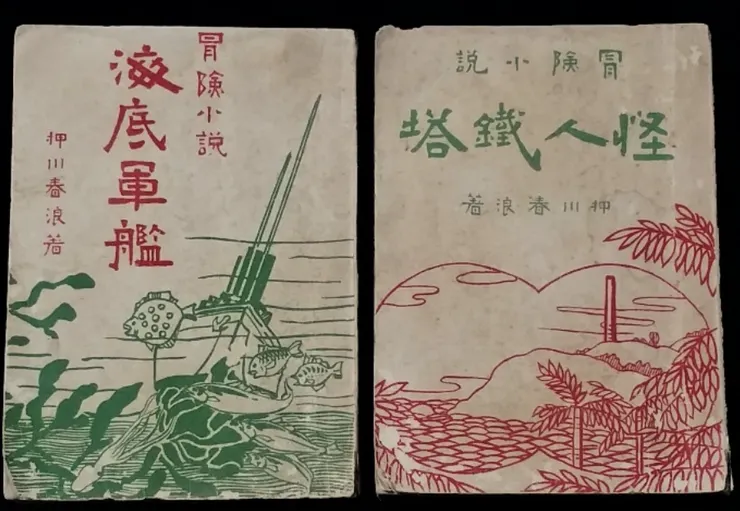 冒険小説
海底軍艦
押川春浪著
冒険小説
怪人鐵塔
押川春浪著